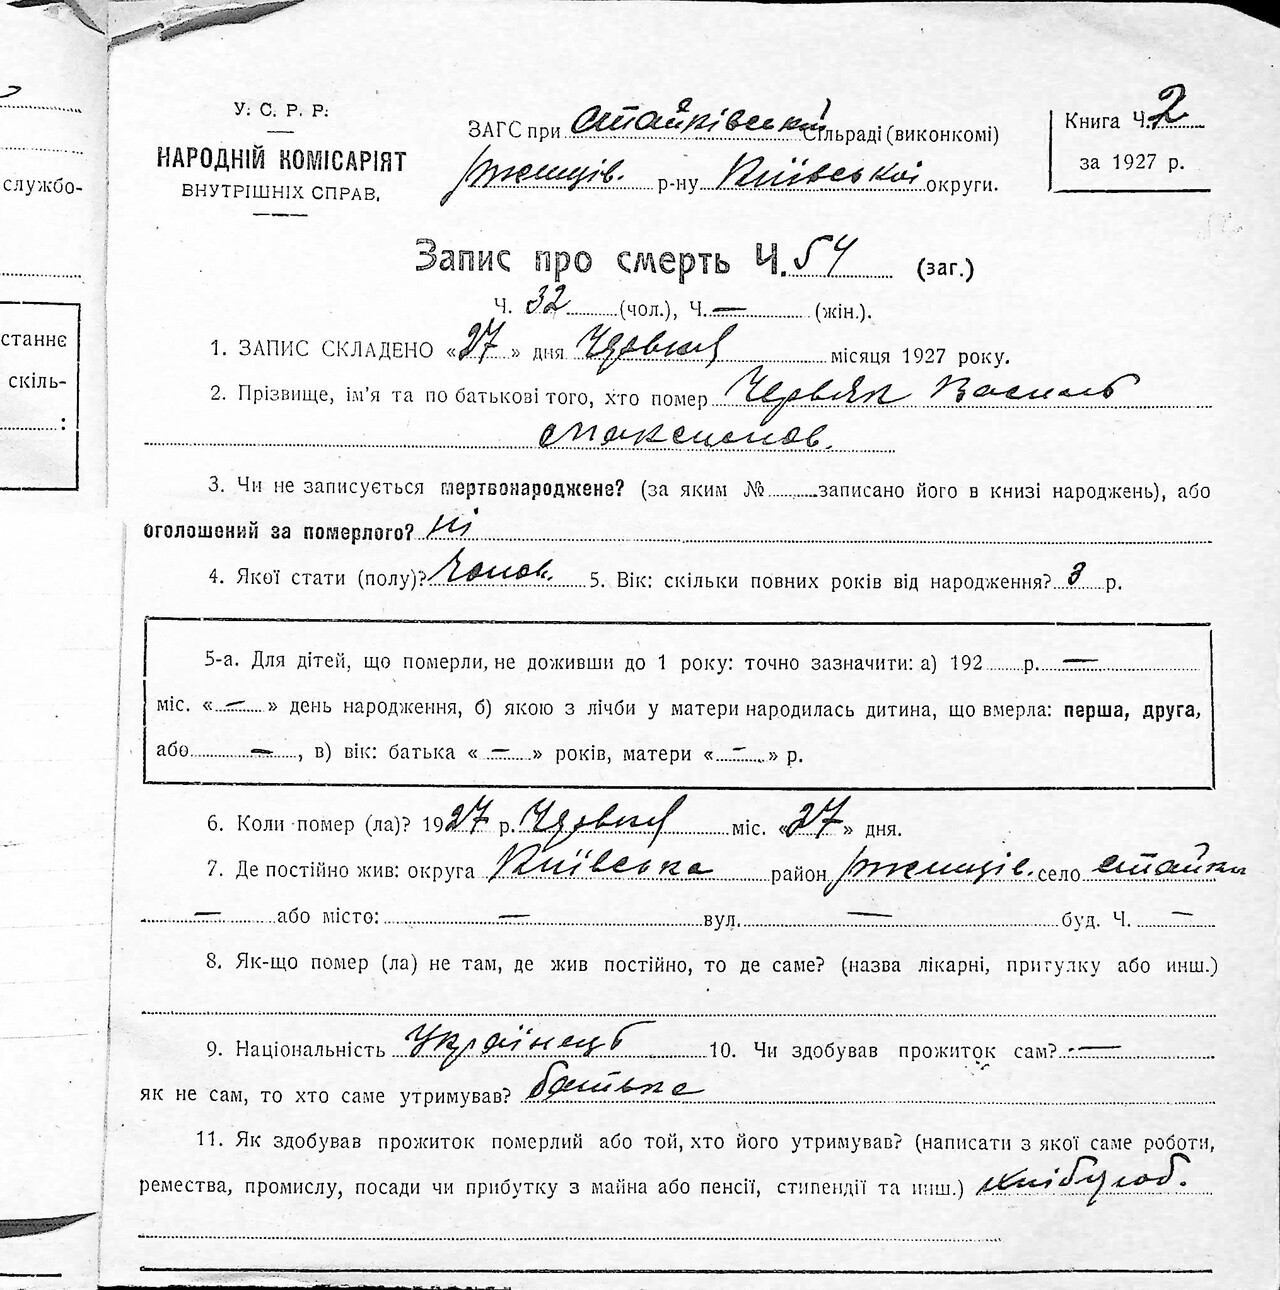 службо-
станнє
скіль-
:
У. С. Р. Р.
НАРОДНІЙ КОМІСАРІЯТ
ВНУТРІШНІХ СПРАВ.
ЗАГС при Стайківській Сільраді (виконкомі)
Ржищів. р-ну Київської округи.
Книга Ч. 2
за 1927 р.
Запис про смерть Ч. 54 (заг.)
Ч. 32 (чол.), Ч. — (жін.).
1. ЗАПИС СКЛАДЕНО «27» дня місяця 1927 року.
2. Прізвище, ім'я та по батькові того, хто помер Червяк Василь
Максимов.
3. Чи не записується мертвонароджене? (за яким № записано його в книзі народжень), або
оголошений за померлого? ні
4. Якої стати (полу)? Чолов. 5. Вік: скільки повних років від народження? 3 р.
5-а. Для дітей, що померли, не доживши до 1 року: точно зазначити: а) 192 р. —
міс. «—» день народження, б) якою з лічби у матери народилась дитина, що вмерла: перша, друга,
або —, в) вік: батька «—» років, матери «—» р.
6. Коли помер (ла)? 1927 р. міс. «27» дня.
7. Де постійно жив: округа Київська район Ржищів. село Стайки
— або місто: — вул. — буд. Ч. —
8. Як-що помер (ла) не там, де жив постійно, то де саме? (назва лікарні, притулку або инш.)
9. Національність Українець 10. Чи здобував прожиток сам? —
як не сам, то хто саме утримував? батько
11. Як здобував прожиток померлий або той, хто його утримував? (написати з якої саме роботи,
ремества, промислу, посади чи прибутку з майна або пенсії, стипендії та инш.) хлібороб.